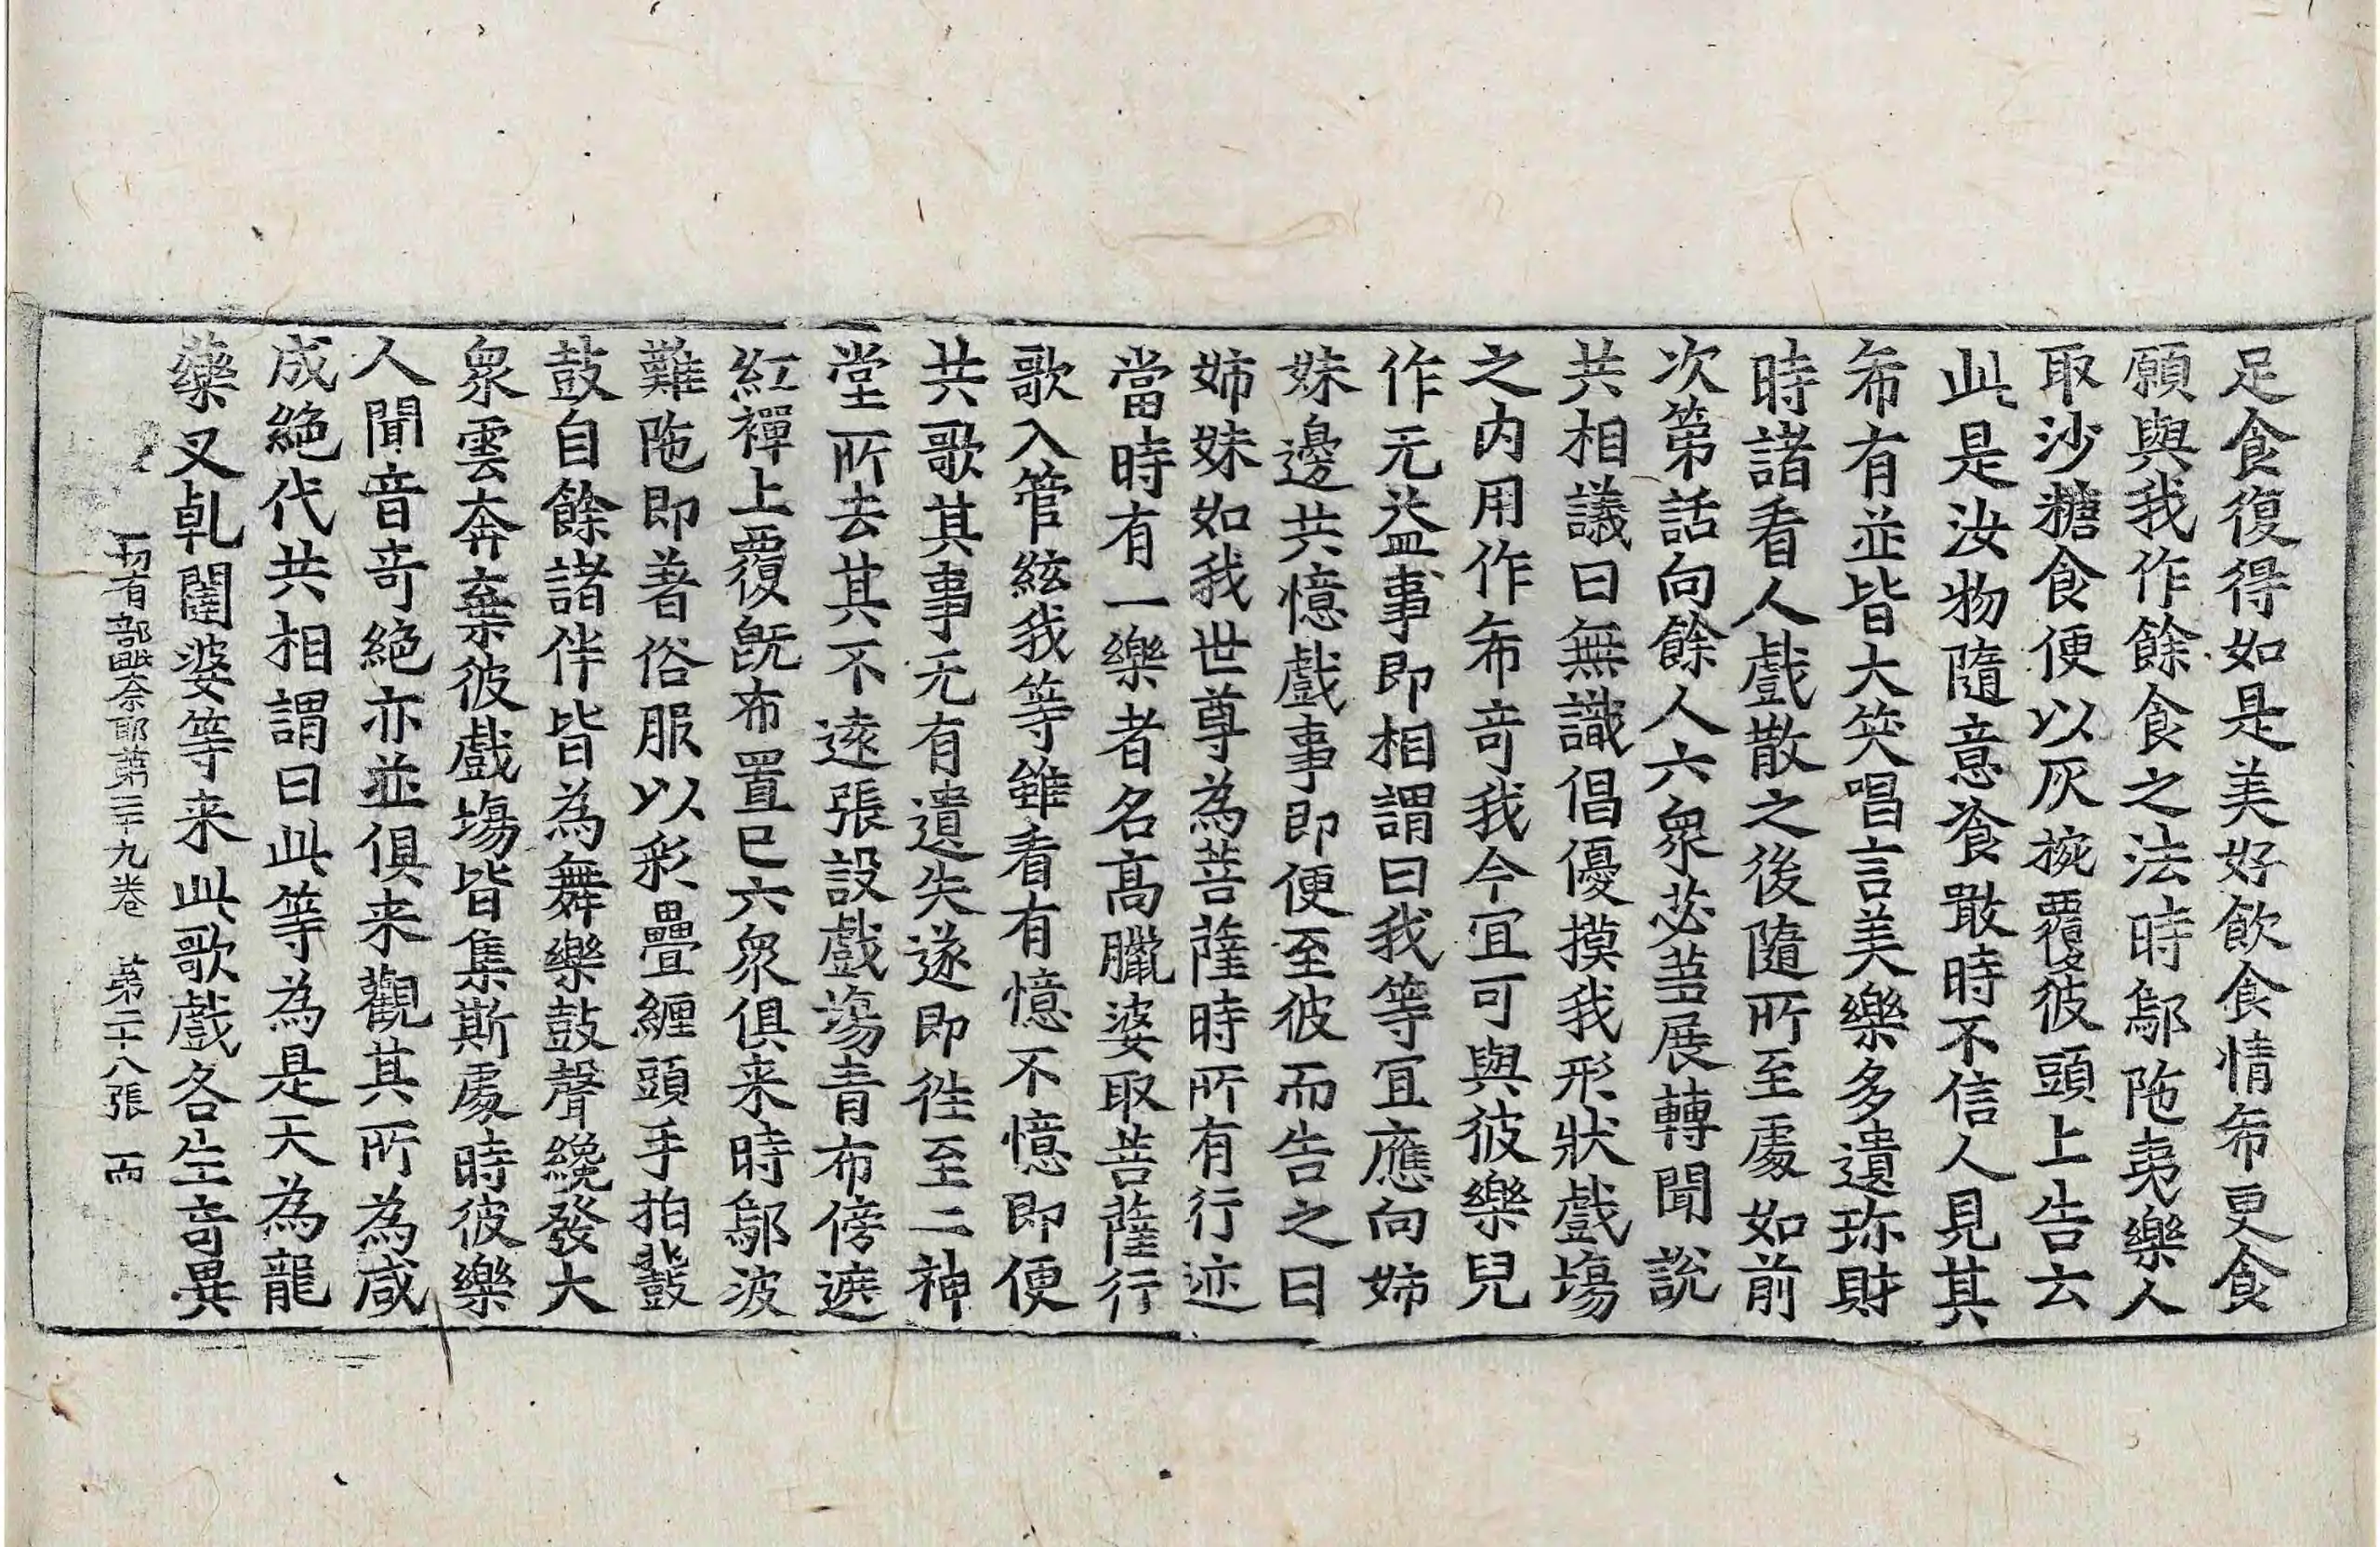 足食復得如是美好飲食情希更食
願與我作餘食之法時鄔陁夷樂人
取沙糖食便以灰㧡覆彼頭上告云
此是汝物隨意飡噉時不信人見其
希有並皆大笑唱言美樂多遺珎財
時諸看人戲散之後隨所至處如前
次第話向餘人六衆苾芻展轉聞說
共相議曰無識倡優摸我形狀戲塲
之內用作希竒我今冝可與彼樂兒
作无益事即相謂曰我等冝應向姉
妹邊共憶戲事即便至彼而告之曰
姉妹如我世尊為菩薩時所有行迹
當時有一樂者名高臘婆取菩薩行
歌入管絃我等雖看有憶不憶即便
共歌其事无有遺失遂即往至二神
堂所去其不遠張設戲塲青布傍遮
紅襌上覆旣布置已六衆俱来時鄔波
難陁即著俗服以彩疊纏頭手拍鼙
鼓自餘諸伴皆為舞樂鼓聲纔發大
衆雲奔棄彼戲塲皆集斯處時彼樂
人聞音竒絶亦並俱来觀其所為咸
成絶代共相謂曰此等為是天為龍
藥叉乹闥婆等来此歌戲各生竒異
一切有部毗奈耶第三十九卷 第二十八張 而